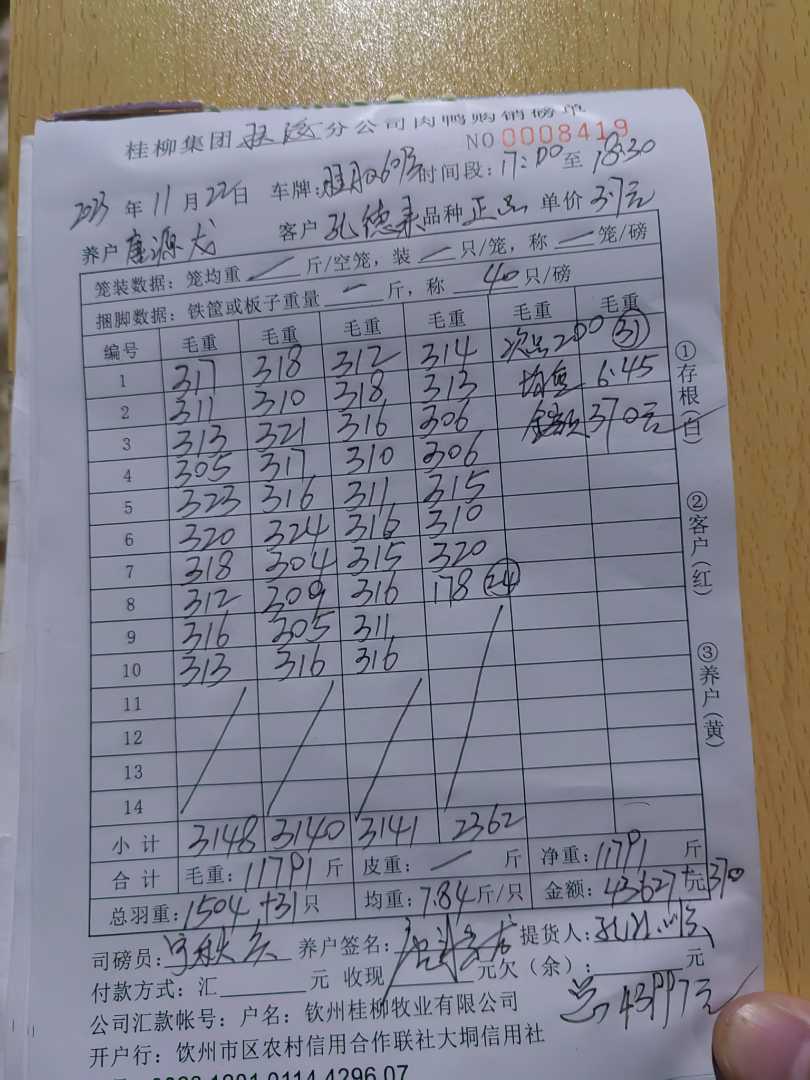 桂柳集团 分公司肉鸭购销磅单
NO 0008419
2023年11月22日 车牌: 时间段:17:00至18:30
养户 唐源龙 客户 孔德 品种 正品 单价 3.7元
笼装数据:笼均重 — 斤/空笼,装 — 只/笼,称 — 笼/磅
捆脚数据:铁筐或板子重量 — 斤,称 40 只/磅
编号 毛重 毛重 毛重 毛重 毛重 毛重
1 317 318 312 314 次品200 31
2 311 310 318 313 均重 6.45
3 313 321 316 306 金额 370元
4 305 317 310 306
5 323 316 311 315
6 320 324 316 310
7 318 304 315 320
8 312 309 316 178 24
9 316 305 311
10 313 316 316
11
12
13
14
小计 3148 3140 3141 2362
合计 毛重:11791斤 皮重: — 斤 净重:11791斤
总羽重:1504+31只 均重:7.84斤/只 金额:43627+元370
司磅员: 养户签名: 提货人:
付款方式:汇 元 收现 元欠(余): 元
总43997元
公司汇款帐号:户名:钦州桂柳牧业有限公司
开户行:钦州市区农村信用合作联社大垌信用社
①存根(白)
②客户(红)
③养户(黄)